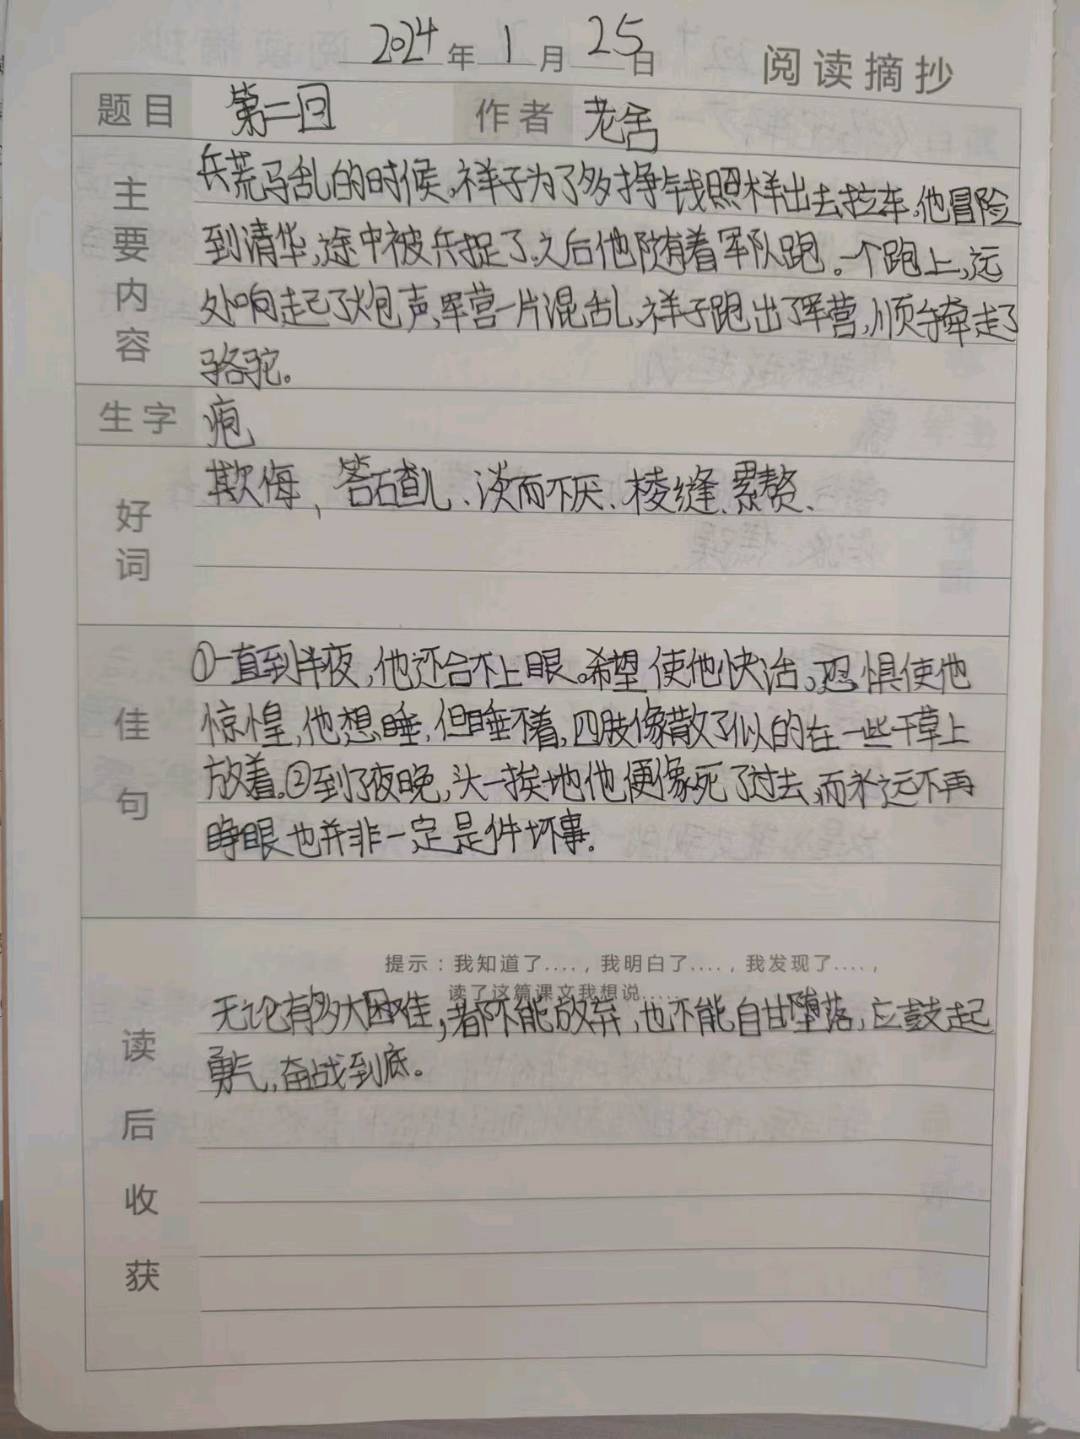 2024年1月25日 阅读摘抄
题目 第二回 作者 老舍
主要内容
兵荒马乱的时候,祥子为了多挣钱照样出去拉车,他冒险
到清华,途中被兵捉了,之后他随着军队跑。一个跑上,远
处响起了炮声,军营一片混乱,祥子跑出了军营,顺手牵走了
骆驼。
生字 疱
好词
欺侮,答碴儿、淡而不厌、棱缝、累赘、
佳句
①一直到半夜,他还合不上眼。希望使他快活,恐惧使他
惊惶,他想睡,但睡不着,四肢像散了似的在一些干草上
放着。②到了夜晚,头一挨地他便像死了过去,而永远不再
睁眼也并非一定是件坏事。
读后收获
提示:我知道了....,我明白了....,我发现了....,
读了这篇课文我想说....
无论有多大困难,都不能放弃,也不能自甘堕落,应鼓起
勇气,奋战到底。